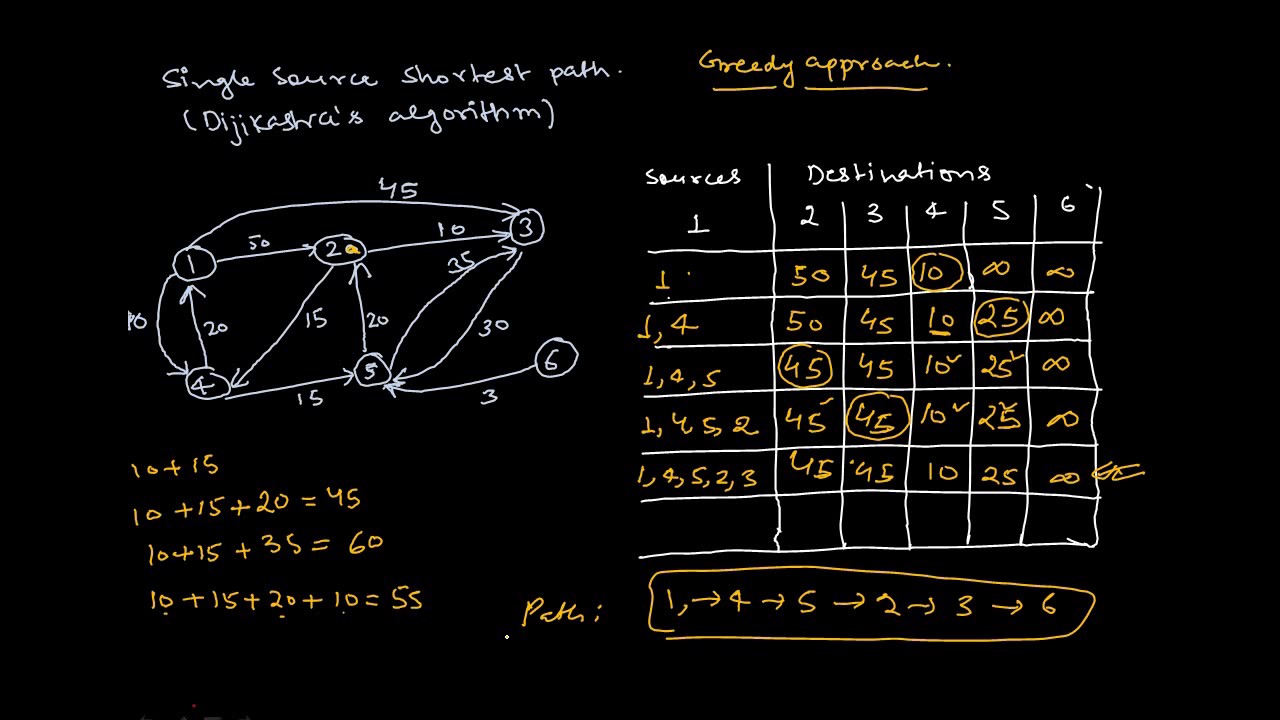 Single Source Shortest path.
(Dijikashra's algorithm)
Greedy approach.
45
50
10
1
2
3
35
15
20
20
30
4
5
6
15
3
Sources Destinations
1 2 3 4 5 6
1 50 45 10 ∞ ∞
1,4 50 45 10 25 ∞
1,4,5 45 45 10 25 ∞
1,4,5,2 45 45 10 25 ∞
1,4,5,2,3 45 45 10 25 ∞
10+15
10+15+20=45
10+15+35=60
10+15+20+10=55
Path: 1,→4→5→2→3→6